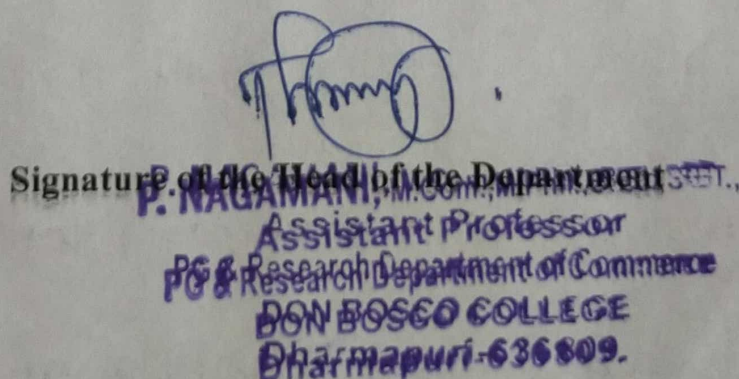 Signature of the Head of the Department
P. NAGAMANI, M.Com.,
Assistant Professor
PG & Research Department of Commerce
DON BOSCO COLLEGE
Dharmapuri-636809.